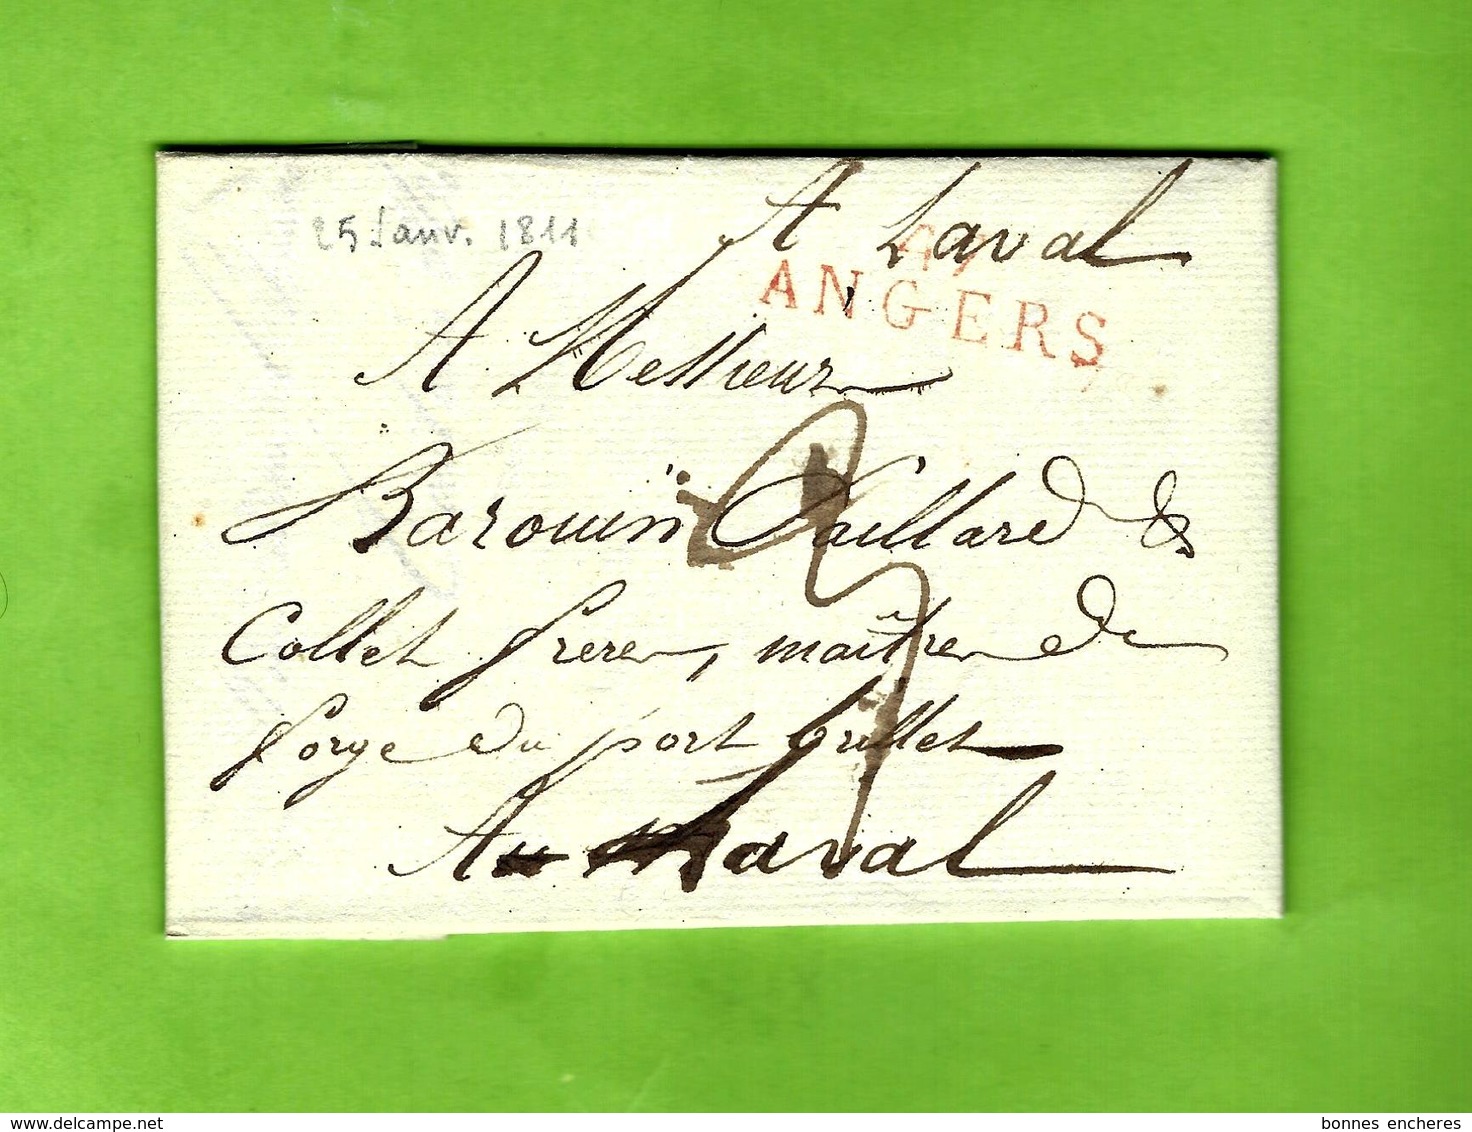 25 Janv. 1811
A Laval
47
ANGERS
A Messieurs
Barouïn Paillard &
Collet freres, maîtres de
forge du port brillet
A Laval
delcampe.net
bonnes encheres